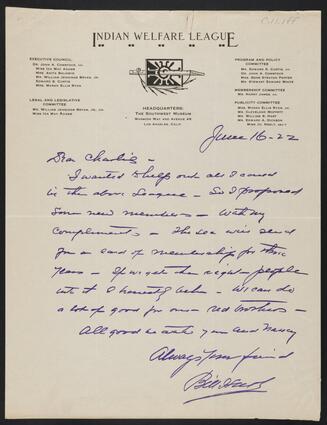 C.11.188
INDIAN WELFARE LEAGUE
EXECUTIVE COUNCIL
DR. JOHN A. COMSTOCK
MISS IDA MAY ADAMS
MRS. ANITA BALDWIN
MR. WILLIAM JENNINGS BRYAN, JR.
EDWARD S. CURTIS
MRS. MARAH ELLIS RYAN
LEGAL AND LEGISLATIVE
COMMITTEE
MR. WILLIAM JENNINGS BRYAN, JR., CH.
MISS IDA MAY ADAMS
HEADQUARTERS:
THE SOUTHWEST MUSEUM
MARMION WAY AND AVENUE 46
LOS ANGELES, CALIF.
PROGRAM AND POLICY
COMMITTEE
MR. EDWARD S. CURTIS, CH.
DR. JOHN A. COMSTOCK
MRS. GENE STRATTON PORTER
MISS IDA MAY ADAMS
MEMBERSHIP COMMITTEE
MR. HARRY JAMES, CH.
PUBLICITY COMMITTEE
MRS. MARAH ELLIS RYAN, CH.
MR. WILLIAM S. HART
MR. EDWARD A. DICKSON
June 16-22
Dear Charlie -
I wanted to help out all I could
in the above League - So I proposed
some new members - With my
compliments - They will send
you a card of membership for three
years - If we get the right people
into it I honestly believe - We can do
a lot of good for our red brothers -
All good health you and Nancy
Always your friend
Bill Hart